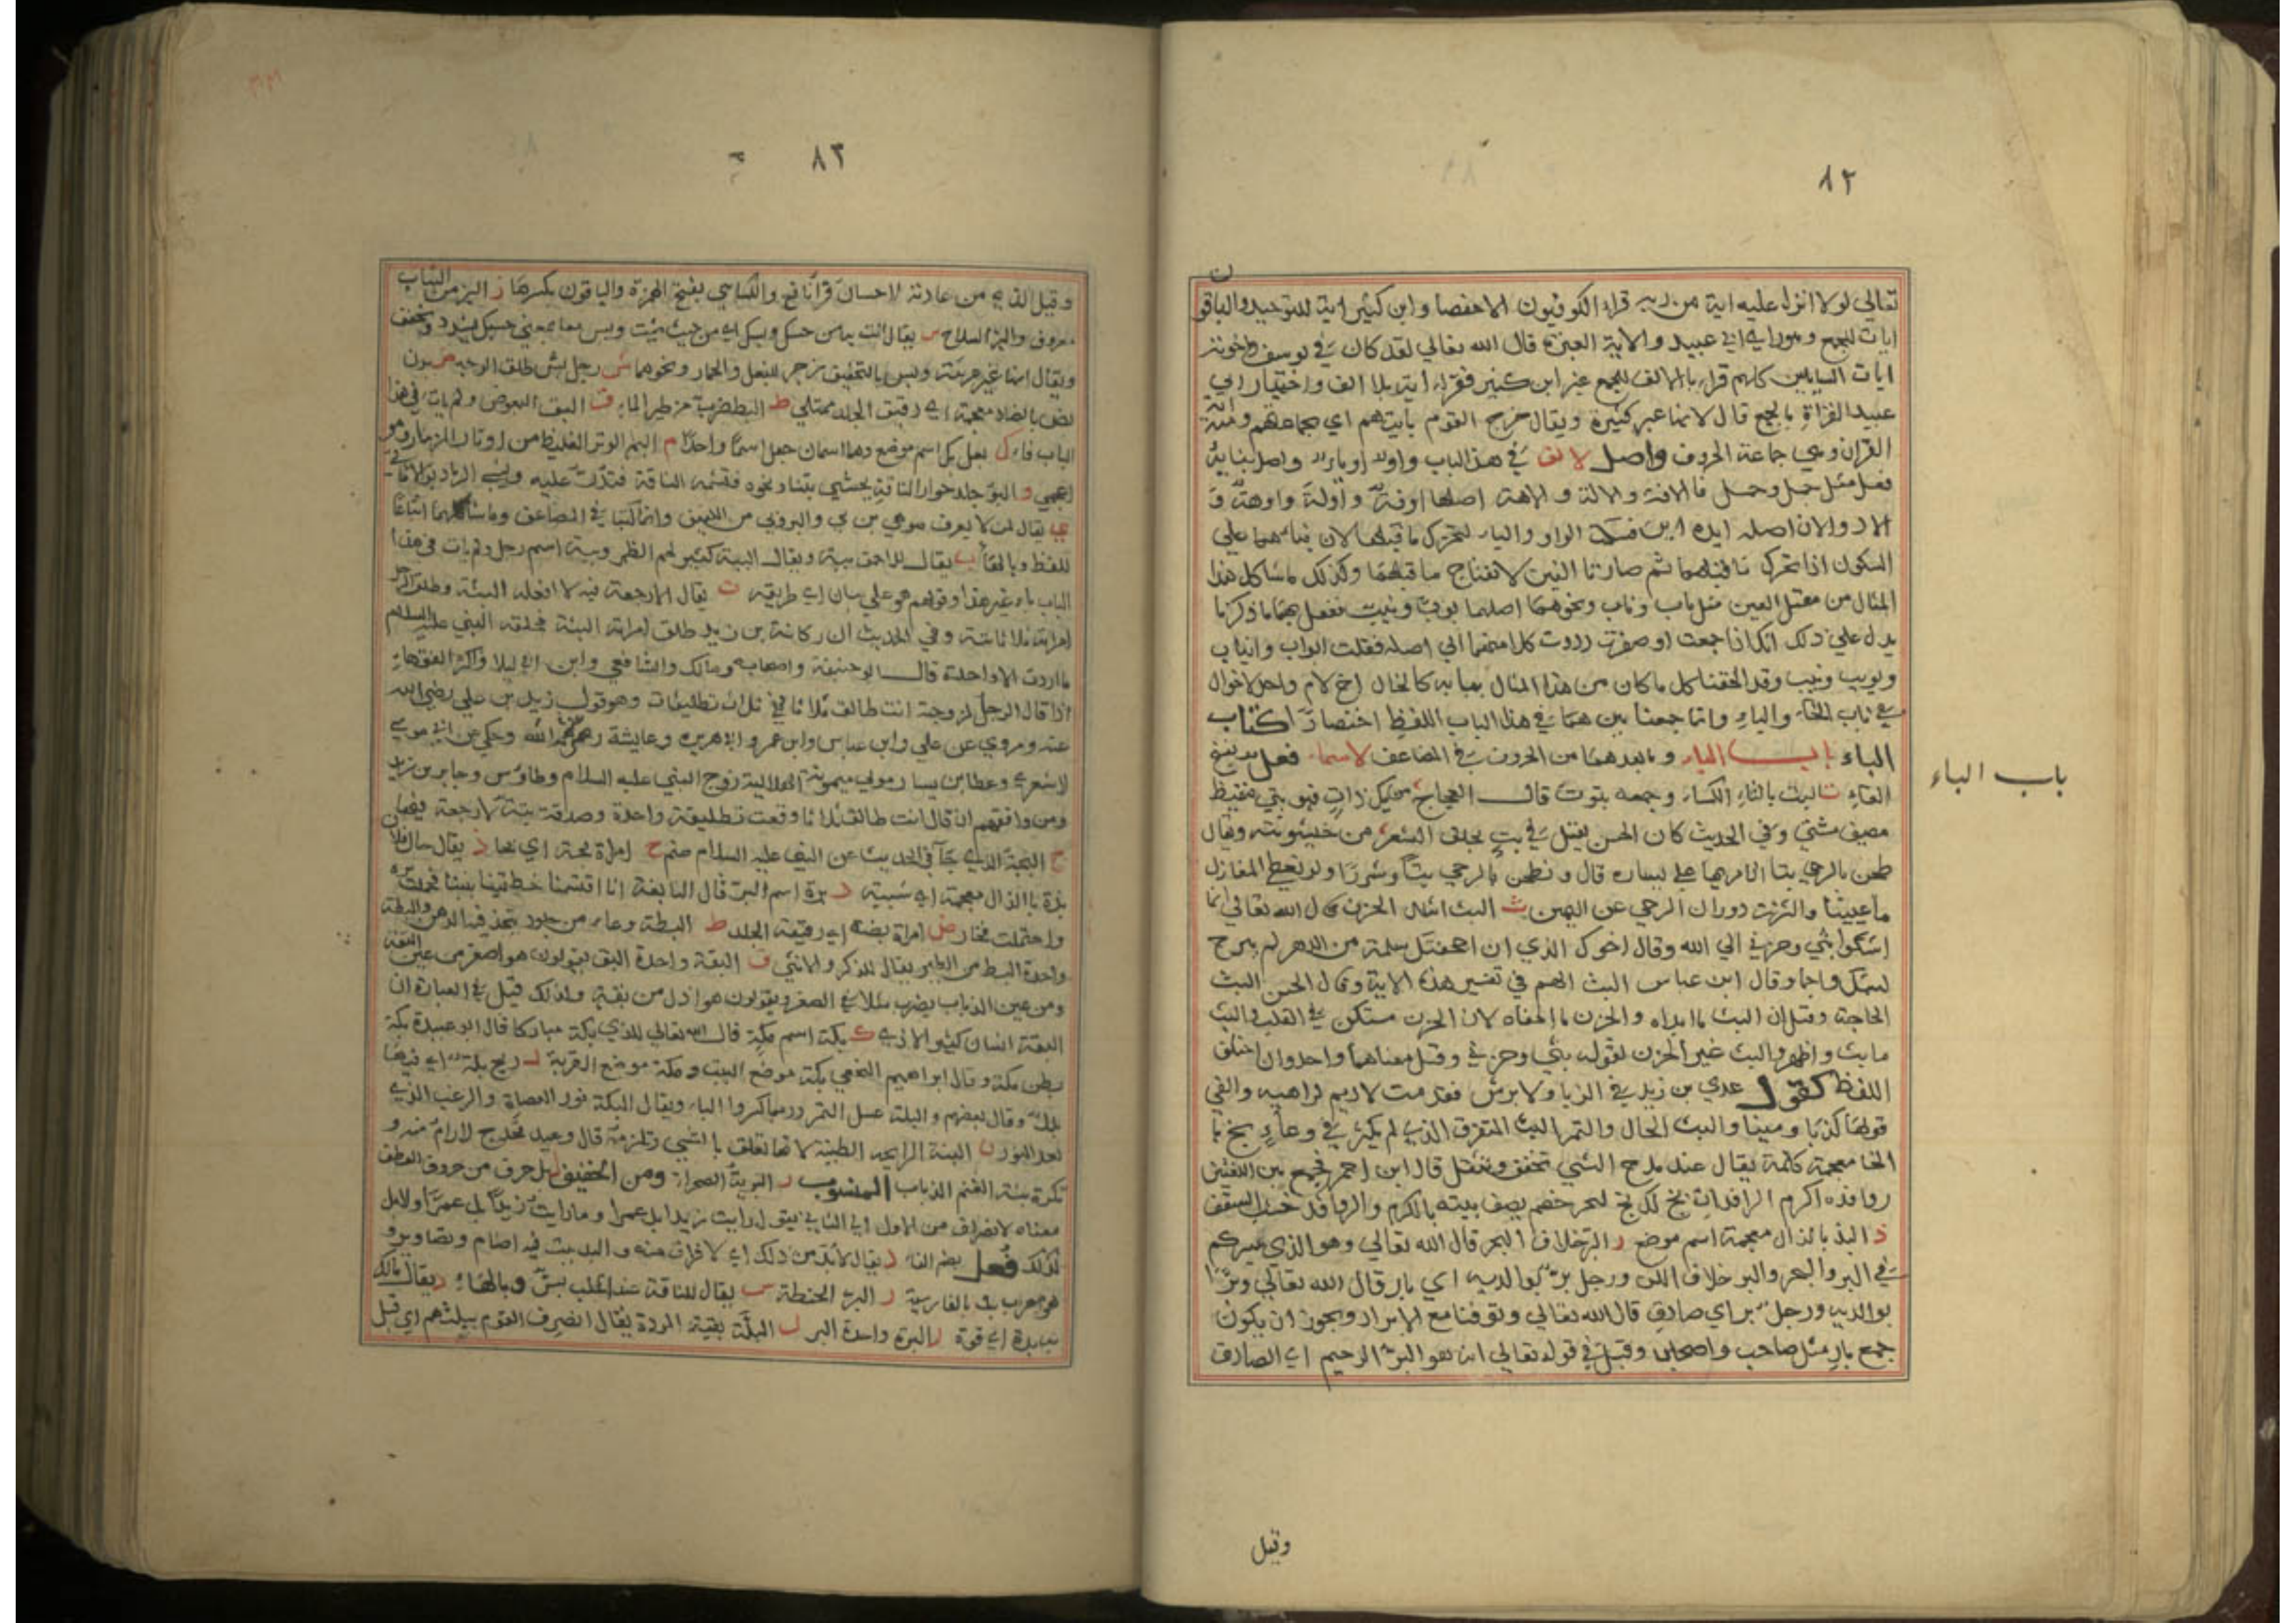 ٨٢
تعالي لولا انزل عليه اية من ربه قراه الكوفيون الا حفصا وابن كثير اية للتوحيد والباقون
ايات للجمع وهو راي ابي عبيد والاية العبرة قال الله تعالي لقد كان في يوسف واخوته
ايات للسايلين كلهم قراه بالالف للجمع غير ابن كثير فقراه اية بلا الف واختيار ابي
عبيد القراة بالجمع قال لانها عبر كثيرة ويقال خرج القوم بايتهم اي بجماعتهم ومنه اية
القران وهي جماعة الحروف واصل الالف في هذا الباب واو او ياء واصل بنايه
فعل مثل جمل وحمل فالافة والالة والاهة اصلها اوفة واولة واوهة و
السكون اذا تحرك ما قبلهما ثم صارتا الفين لانفتاح ما قبلهما وكذلك ما شاكل هذا
المثال من معتل العين مثل باب وناب ونحوهما اصلهما بوب ونيب ففعل بهما ما ذكرنا
يدل علي ذلك انك اذا جمعت او صغرت رددت كلا منهما الي اصله فقلت ابواب وانياب
وبويب ونييب وقد الحقنا كل ما كان من هذا المثال ببابه كالخال اخ الام واحد الاخوال
في باب الخاء والياء وانما جمعنا بينهما في هذا الباب اللفظ اختصارا كتاب
الباء باب الباء وما بعدها من الحروف في المضاعف الاسماء فعل بفتح
باب الباء
الفاء ت البت بالتاء الكساء وجمعه بتوت قال العجاج من يك ذا بت فهو بتي مقيظ
مصيف مشتي وفي الحديث كان الحسن يقيل في بت يخلق الشعر من خشونته ويقال
طحن بالرحي بتا اذا مر بها علي يساره قال ونطحن بالرحي بتا وشزرا ولو نعطي المغازل
ما عيينا والشزر دوران الرحي عن اليمين ث البث اشد الحزن قال الله تعالي انما
اشكوا بثي وحزني الي الله وقال اخوك الذي ان اجحفتك ملمة من الدهر لم يبرح
لبثك واجما وقال ابن عباس البث الهم في تفسير هذه الاية وقال الحسن البث
الحاجة وقيل ان البث ما ابداه والحزن ما اخفاه لان الحزن مستكن في القلب والبث
ما بث واظهر والبث غير الحزن لقوله بثي وحزني وقيل معناهما واحد وان اختلف
اللفظ كقول عدي بن زيد في الزباء والابرش فقدمت الاديم لراهشيه والفي
قولها كذبا ومينا والبث الحال والتمر البث المتفرق الذي لم يكنز في وعاء خ بخ با
الخا معجمة كلمة يقال عند مدح الشي تخفف وتثقل قال ابن احمر فجمع بين اللغتين
روافده اكرم الرافدات بخ لك بخ لبحر خضم يصف بيته بالكرم والروافد خشب السقف
ذ البذ بالذال معجمة اسم موضع ر البر خلاف البحر قال الله تعالي وهو الذي يسيركم
في البر والبحر والبر خلاف اللين ورجل بر بوالديه اي بار قال الله تعالي وبرا
بوالديه ورجل بر اي صادق قال الله تعالي وتوفنا مع الابرار ويجوز ان يكون
جمع بار مثل صاحب واصحاب وقيل في قوله تعالي انه هو البر الرحيم اي الصادق
وقيل
٨٣
وقيل الذي من عادته الاحسان قرا نافع والكسائي بفتح الهمزة والباقون بكسرها ز البز من الثياب
معروف والبز السلاح س يقال ائت به من حسك وبسك اي من حيث شيت وبس معا بمعني حسبك يشدد ويخفف
ويقال انها غير عربية وبس بالتخفيف زجر للبغل والحمار ونحوهما ش رجل بش طلق الوجه ض بدن
بض بالضاد معجمة اي رقيق الجلد ممتلي ط البط ضرب من طير الماء ق البق البعوض ولم يات في هذا
الباب فاء ك بعل بك اسم موضع وهما اسمان جعلا اسما واحدا م البم الوتر الغليظ من اوتار المزمار وهو
اعجمي و البو جلد حوار الناقة يحشي ثيابا ونحوه فتشمه الناقة فتدر عليه
ي يقال لمن لا يعرف هو هي بن بي
للفظ وبالهاء ب يقال للاحمق ببة ويقال الببة كثير لحم الظهر وببة اسم رجل ولم يات في هذا
الباب باء غير هذا وقولهم هو علي ببان اي طريقة ت يقال لا رجعة فيه لا افعله البتة وطلق الرجل
امراته ثلاثا بتة وفي الحديث ان ركانة بن زيد طلق امراته البتة فحلفه النبي عليه السلام
ما اردت الا واحدة قال ابو حنيفة واصحابه ومالك والشافعي وابن ابي ليلا واكثر الفقهاء
اذا قال الرجل لزوجته انت طالق ثلاثا فهي ثلاث تطليقات وهو قول زيد بن علي رضي الله
عنه ومروي عن علي وابن عباس وابن عمر وابي هريرة وعايشة رحمهم الله وحكي عن ابي موسي
الاشعري وعطا بن يسار مولي ميمونة الهلالية زوج النبي عليه السلام وطاوس وجابر بن زيد
ومن وافقهم ان قال انت طالق ثلاثا وقعت تطليقة واحدة وصدقة بتة لا رجعة فيها
ج البجة الذي جاء في الحديث عن النبي عليه السلام صنم ح امراة بحة اي بحاء ذ يقال حال فلان
بذة بالذال معجمة اي سيئة ر برة اسم البر قال النابغة انا اقتسمنا خطتينا بيننا فحملت برة
واحتملت فجار ض امراة بضة اي رقيقة الجلد ط البطة وعاء من جلود يتخذ فيه الدهن والبطة
واحدة البط من الطير يقال للذكر والانثي ق البقة واحدة البق يقولون هو اصغر من عين البقة
ومن عين الذباب يضرب مثلا في الصغر ويقولون هو اذل من بقة ولذلك قيل في العبارة ان
البقة انسان كثير الاذي ك بكة اسم مكة قال الله تعالي للذي ببكة مباركا قال ابو عبيدة بكة
بطن مكة وقال ابراهيم النخعي بكة موضع البيت ومكة موضع القرية ل ريح بلة اي فيها
بلل وقال بعضهم والبلة عسل السمر وربما كسروا الباء ويقال البلة نور العضاة والزغب الذي
بعد النور ن البنة الرايحة الطيبة لانها تعلق بالشي وتلزمه قال وعيد تخدج الارام منه و
تكره بنة الغنم الذياب المنسوب ر البرية الصحراء ومن الخفيف ل بل حرف من حروف العطف
معناه الاضراب من الاول الي الثاني يقول رايت زيدا بل عمرا وما رايت زيدا بل عمرا ولا بل
كذلك فعل بضم الفاء د يقال لا بد من ذلك اي لا فراق منه والبد بيت فيه اصنام وتصاوير و
هو معرب بت بالفارسية ر البر الحنطة س يقال للناقة عند الحلب بس وبالهاء د يقال مالك
به بدة اي قوة ر البرة واحدة البر ل البلة بقية المودة يقال انصرف القوم ببلتهم اي قبل